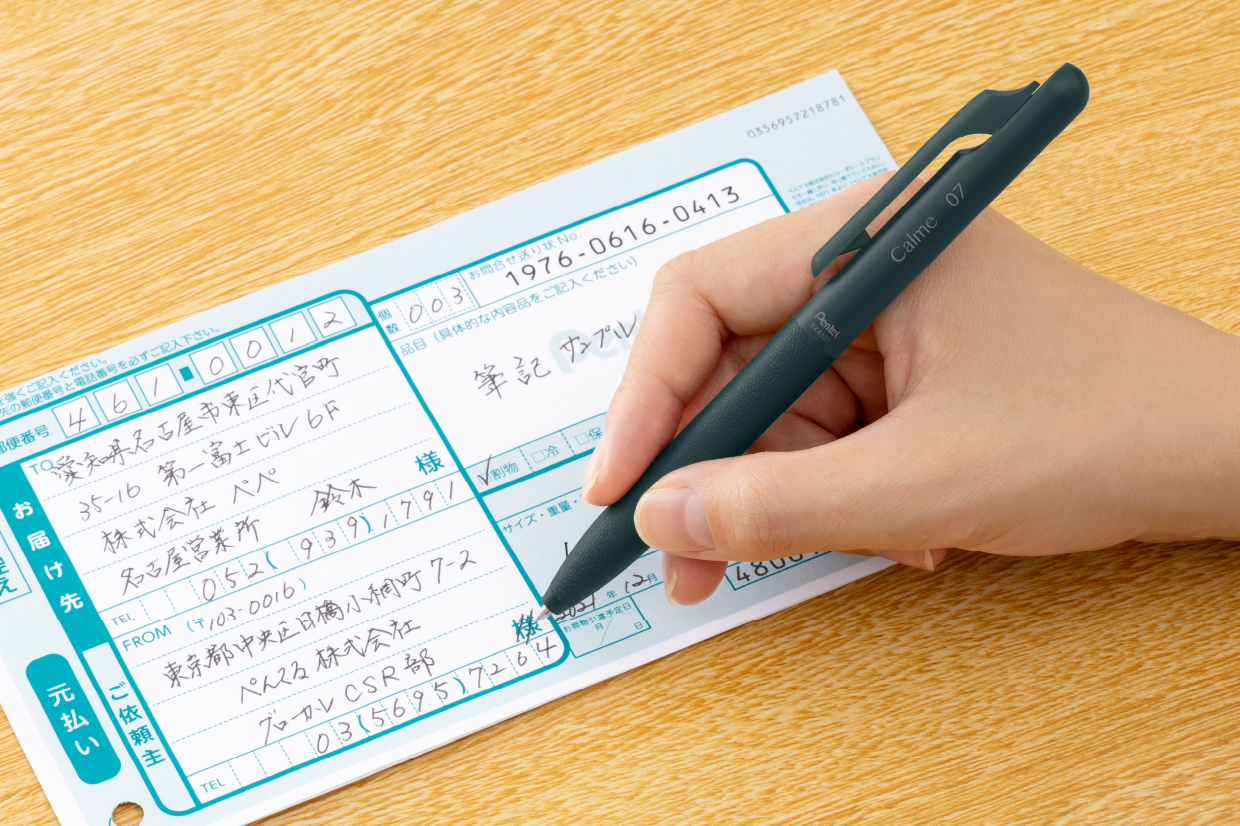 0356957218781
お問合せ送り状No.
1976-0616-0413
個数 003
品目（具体的な内容品をご記入ください）
筆記 サンプル
割物 □冷 □保
サイズ・重量・
年 12月
お荷物引渡予定日
月 日
強くご記入ください。
先の郵便番号と電話番号を必ずご記入下さい。
郵便番号 461-0012
お届け先
TO 愛知県名古屋市東区代官町
35-16 第一富士ビル6F
株式会社 ペペ
名古屋営業所 鈴木 様
TEL 052(939)1791
ご依頼主
FROM （〒103-0016）
東京都中央区日本橋小網町7-2
ぺんてる株式会社
グローカルCSR部 様
TEL 03(5695)7264
元払い
Calme 07
Pentel